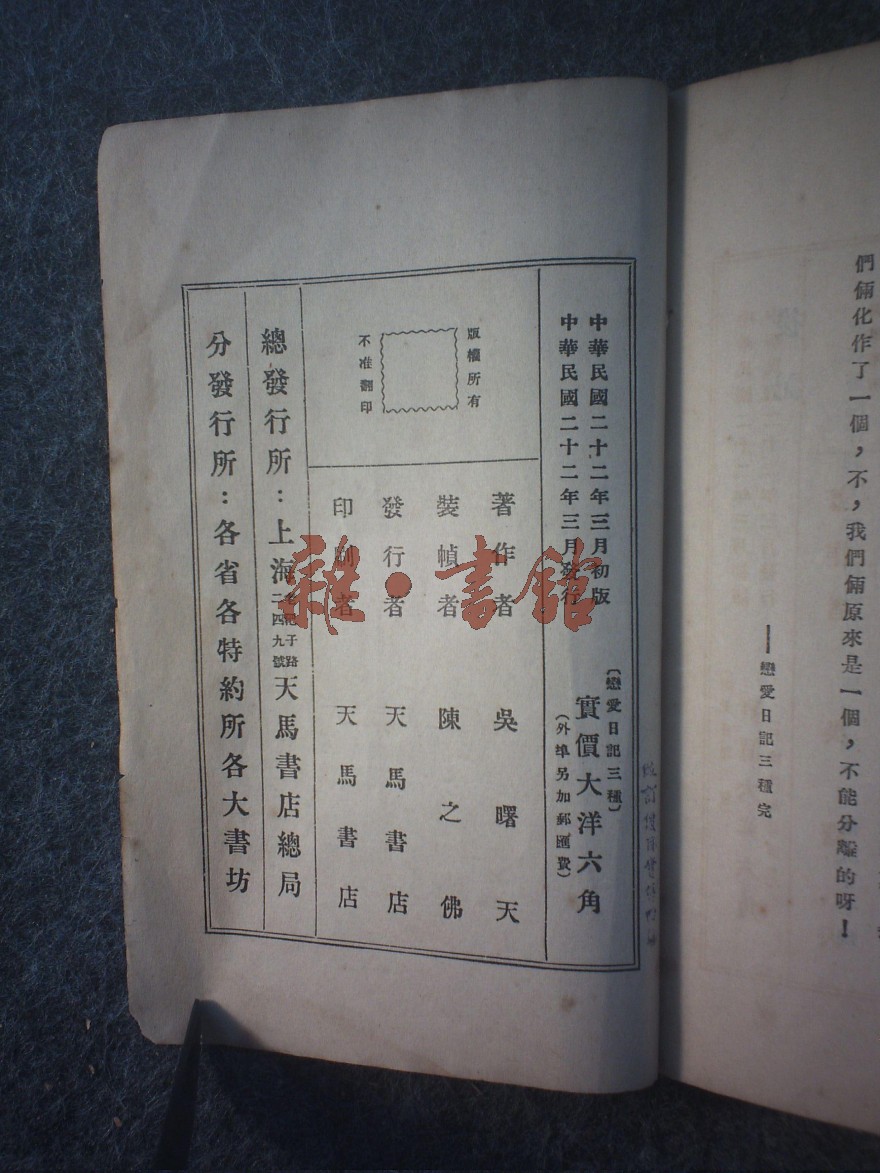 們倆化作了一個，不，我們倆原來是一個，不能分離的呀！
——戀愛日記三種完
中華民國二十二年三月初版
中華民國二十二年三月發行
（戀愛日記三種）
實價大洋六角
（外埠另加郵匯費）
版權所有
不准翻印
著作者　吳曙天
裝幀者　陳之佛
發行者　天馬書店
印刷者　天馬書店
總發行所：上海
二四九號
天馬書店總局
分發行所：各省各特約所各大書坊
雜·書館